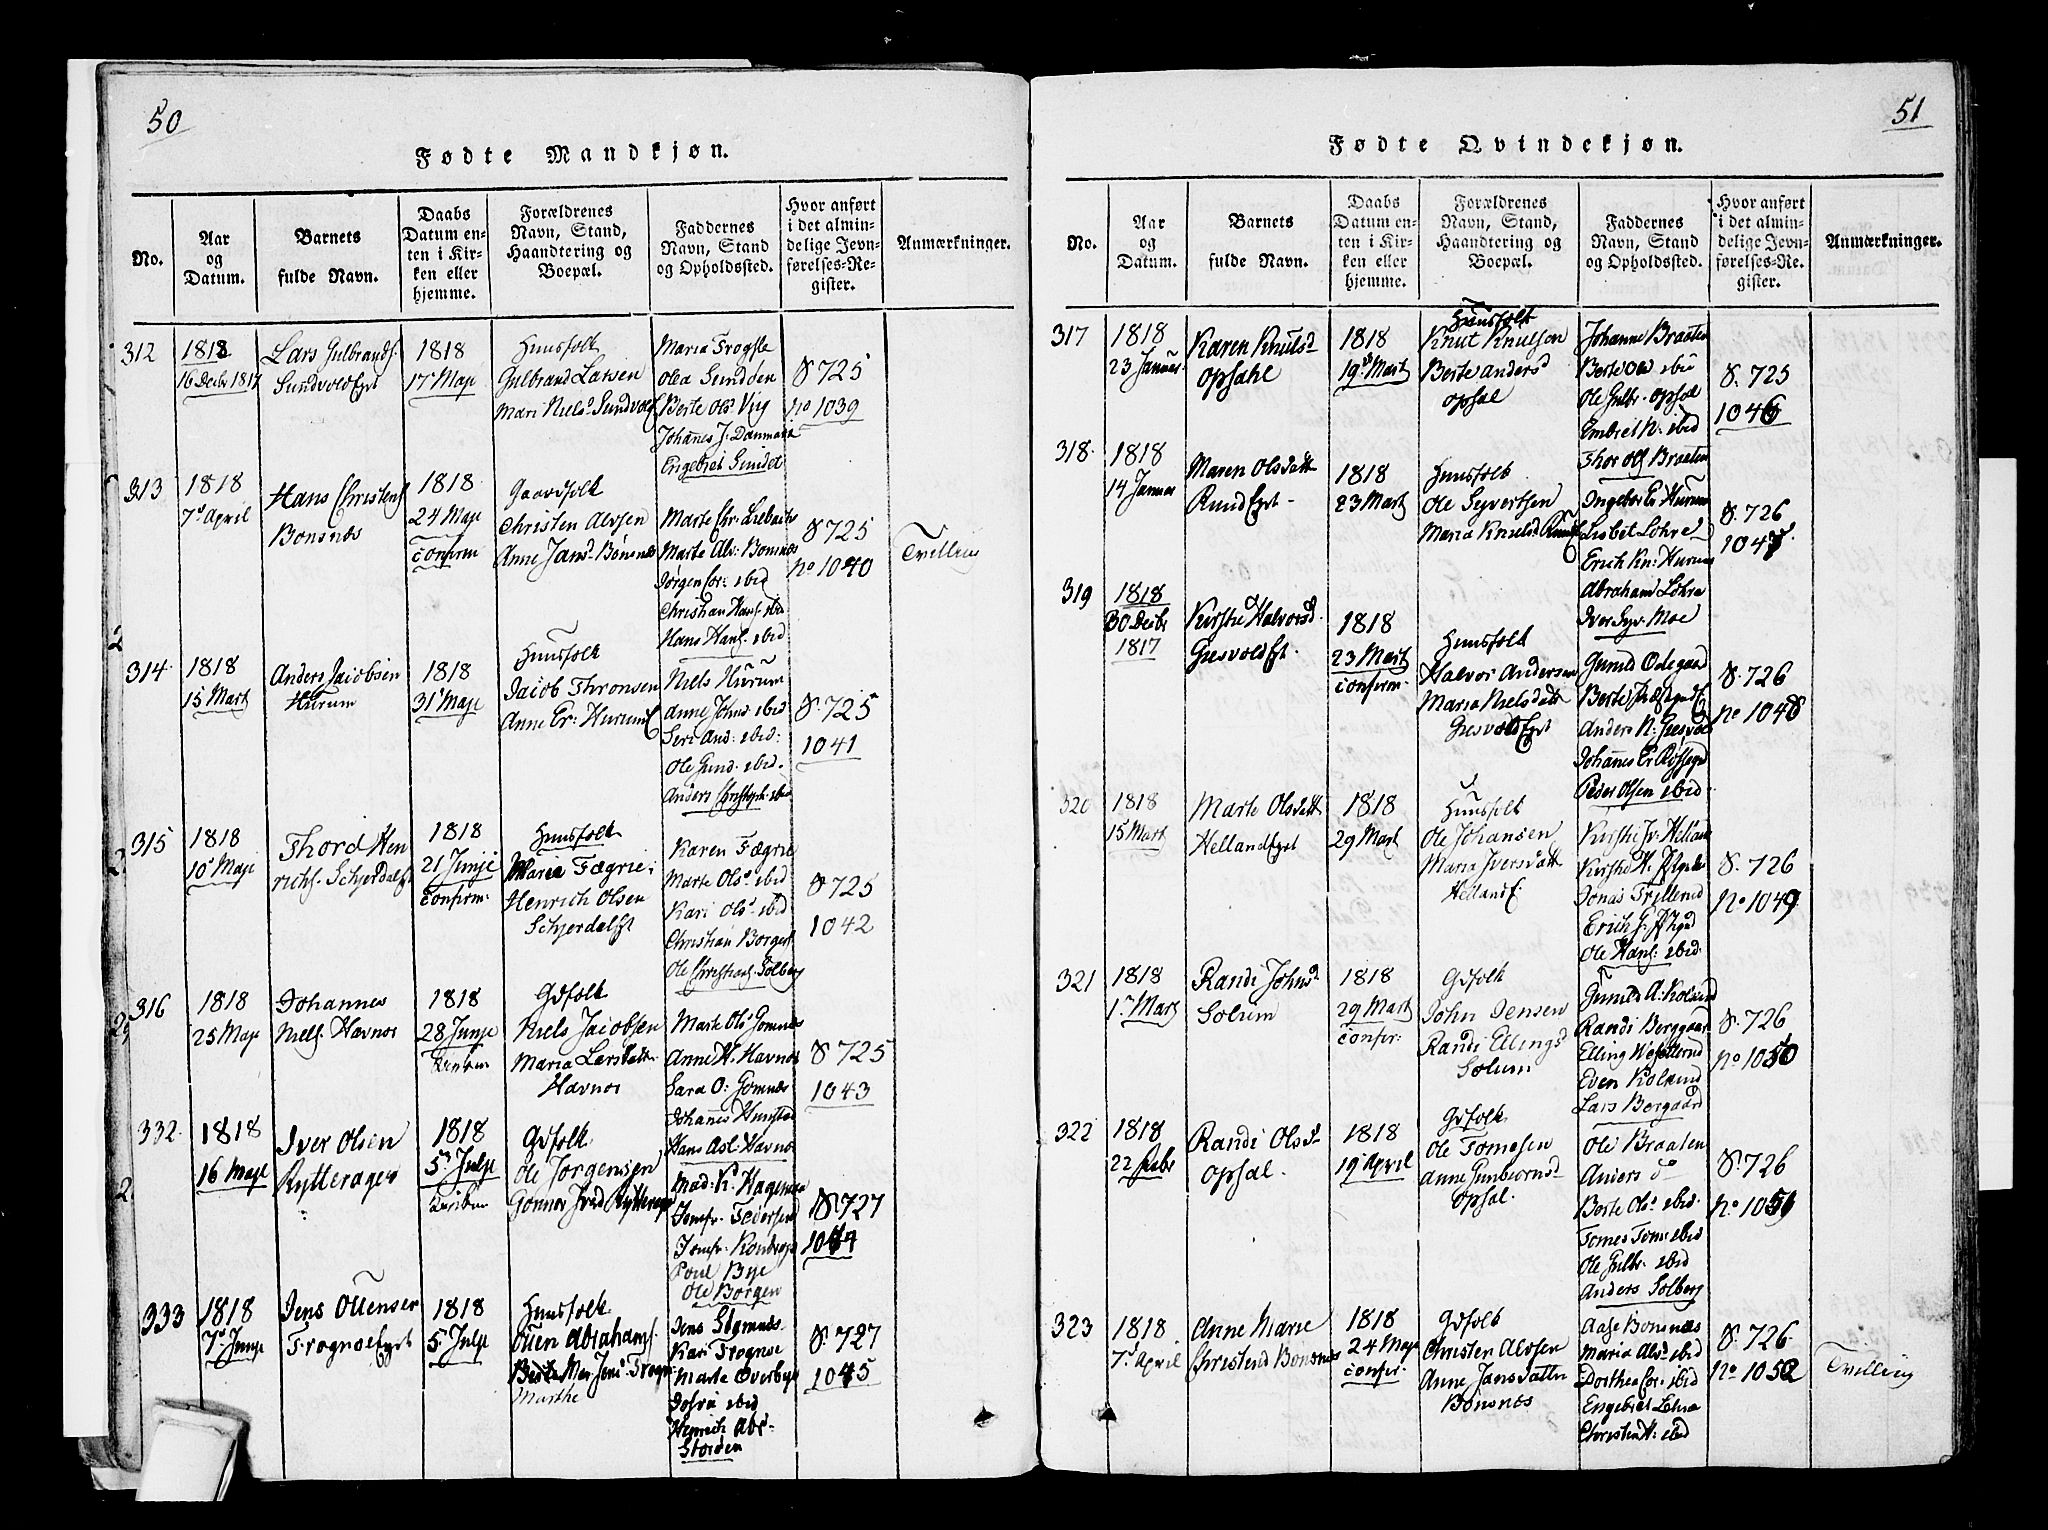 50
Fødte Mandkjøn.
No.
Aar
og
Datum.
Barnets
fulde Navn.
Daabs
Datum en-
ten i Kir-
ken eller
hjemme.
Forældrenes
Navn, Stand,
Haandtering og
Boepæl.
Faddernes
Navn, Stand
og Opholdssted.
Hvor anført
i det almin-
delige Jevn-
førelses-Re-
gister.
Anmærkninger.
312
1818
16 Decbr 1817
Lars Gulbrands.
Sundvold Eyt
1818
17 Maje
Huusfolk
Gulbrand Larsen
Mari Niels. Sundvold
Maria Frogsle
Olea Sundøen
Berte Ols. Viig
Johanes J. Danmark
Engebret Sundet
F 725
No 1039
313
1818
7 April
Hans Christens.
Bonsnæs
1818
24 Maje
confirm
Gaardfolk
Christen Alvsen
Anne Jans. Bønsnæs
Marte Chr. Liebacks
Marte Alv: Bonsnæs
Jørgen Cor: ibid
Christian Hans. ibid
Hans Hans. ibid:
F 725
No 1040
Tvilling
314.
1818
15 Mart
Anders Jacobsen
Hurum
1818
31 Maje
Huusfolk
Jacob Thronsen
Anne Er: Hurum E
Niels Hurum
Anne Johns. ibid
Seri And: ibid:
Ole Gund. ibid.
Anders Christoph. ibid
F 725
1041
315
1818
10 Maje
Thord Hen
richs. Schjerdals Eyt
1818
21 Junje
confirm:
Huusfolk
Maria Fægrie:
Henrich Olsen
Schjerdals Et
Karen Fægrie
Marte Ols. ibid
Kari Ols. ibid
Christian Borgers.
Ole Christians. Solberg
F 725
1042
316
1818
25 Maje
Johannes
Niels. Havnor
1818
28 Junje
Gdfolk
Niels Jacobsen
Maria Larsdatt.
Havnor
Marte Ols. Gomnæs
Anne H. Havnor
Sara O: Gomnæs
Johannes Hunstad
Hans Asl. Havnor
F 725
1043
332.
1818
16 Maje
Iver Olsen
Rytterager
1818
5 Julje
Gdfolk.
Ole Jørgensen
Gonnor Iversd Rytterager
Mad. K. Hagemann
Jomfr. Federsen
Jomfr. Konberg
Poul Bye
Ole Borgen
F 727
1044
333
1818
7 Junje
Jens Ottensen
Frognøe Eyt
1818
5 Julje
Huusfolk
Otten Abrahams.
Berte Mar Jens. Frogn.
Marthe
Jens Stomnæs
Kari Frognøe
Marte Overbye
Johra ibid
Henrich Abr.
Storøen
F 727
1045
51
Fødte Qvindekjøn.
No.
Aar
og
Datum.
Barnets
fulde Navn.
Daabs
Datum en-
ten i Kir-
ken eller
hjemme.
Forældrenes
Navn, Stand,
Haandtering og
Boepæl.
Faddernes
Navn, Stand
og Opholdssted.
Hvor anført
i det almin-
delige Jevn-
førelses-Re-
gister.
Anmærkninger.
317
1818
23 Januar
Karen Knutsd
Opsahl
1818
19 Mart
Huusfolk
Knut Knutsen
Berte Andersd
Opsal
Johanne Braaten
Berte Old ibid
Ole Gulbr. Opsal
Embret N. ibid
Thor Ols Braaten
F. 725
1046
318.
1818
14 Januar
Maren Olsdatt
Rund Eyt
1818
23 Mart
Huusfolk
Ole Syvertsen
Maria Knutsd Rund E
Ingebor Er Hurum
Lisbet Lohre
Erich Kn: Hurum
Abraham Löhre
Iver Syv. Moe
F. 726
1047
319
1818
30 Decbr
1817
Kirstie Halvorsd.
Giesvold Et.
1818
23 Mart
confirm.
Huusfolk
Halvor Andersen
Maria Nielsdatt
Giesvold Eyt
Gunild Odegaard
Anders N: Giesvold
Johanes Er Røssegrd
Peder Olsen ibid.
F. 726
No 1048
320
1818
15 Mart
Marte Olsdatt
Helland Eyt
1818
29 Mart
Huusfolk
Ole Johansen
Maria Iversdatt
Helland E:
Kirstie Iv. Helland
Jonas Tryllerud
Ole Hans. ibid.
F. 726
No 1049
321
1818
1 Mart
Randi Johnsd
Solum
1818
29 Mart
confir:
Gdfolk
John Jensen
Randi Ellingsd
Solum
Gunild A: Kolsrud
Randi Berggaard
Elling Wesetterud
Even Kolsrud
Lars Borgaard
F. 726
No 1050
322
1818
22 Febr
Randi Olsd
Opsal.
1818
19 April
Gdfolk
Ole Tomesen
Anne Gunbiornsd
Opsal.
Oli Braaten
Anders do
Berte Ols. ibid
Tomes Toms ibid
Ole Gulbr. ibid
Anders Solberg
F. 726
No 1051
323
1818
7 April
Anne Marie
Christend Bonsnæs
1818
24 Maje
confir.
Gdfolk
Christen Alvsen
Anne Jansdatter
Bonsnæs
Aase Bonsnæs
Maria Alvs. ibid
Dorthea Cor. ibid
Engebret Lohre
Christin H: ibid
F. 726.
No. 1052
Tvilling